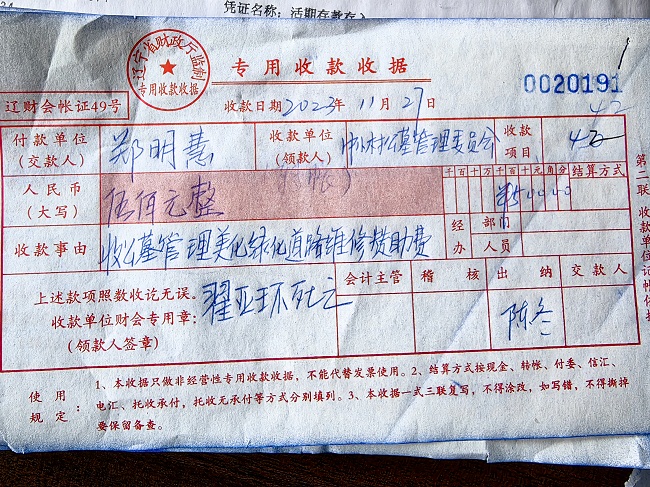 凭证名称：活期存款存入
辽宁省财政厅监制
专用收款收据
专用收款收据
0020191
辽财会帐证49号
收款日期 2023年 11月 27日
付款单位 郑明慧 收款单位 村公墓管理委员会 收款
(交款人) (领款人) 项目
人民币 伍佰元整 千百十万千百十元角分 结算方式
(大写) ¥50000
收款事由 收公墓管理美化绿化道路维修赞助费 经 部门
办 人员
上述款项照数收讫无误。 会计主管 稽核 出纳 交款人
收款单位财会专用章： 陈冬
(领款人签章)
第二联 收款单位记帐依据
使用 1、本收据只做非经营性专用收款收据，不能代替发票使用。2、结算方式按现金、转帐、付委、信汇、
规定： 电汇、托收承付，托收无承付等方式分别填列。3、本收据一式三联复写，不得涂改，如写错，不得撕掉
要保留备查。